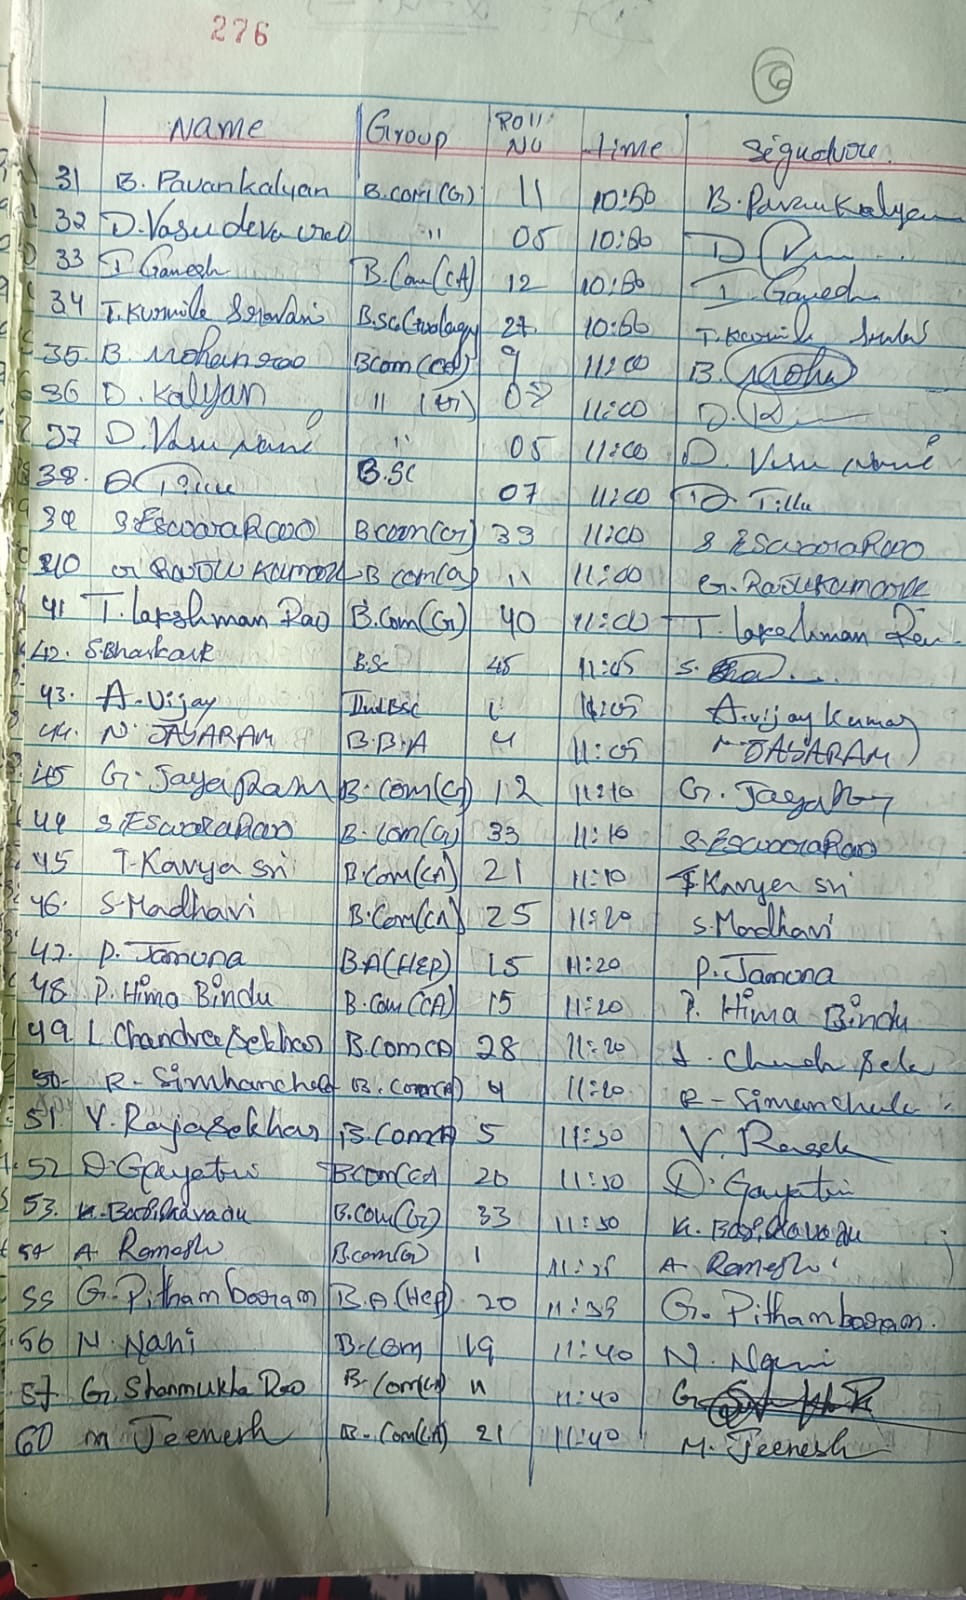 276
6
Name Group Roll No time Signature
31 B. Pavankalyan B.com(G) 11 10:50 B. Pavankalyan
32 D. Vasudeva rao " 05 10:50 D
33 I Ganesh B.Com(CA) 12 10:50 I. Ganesh
34 T. Sravani B.sc(zoology) 27 10:50 T.
35. B. Mohanrao Bcom(CA) 9 11:00 B.
36 D. Kalyan " (G) 08 11:00 D.
37 D. Vasu nani " 05 11:00 D. Vasu nani
38. D B.Sc 07 11:00 D. Tillu
39 S. EswaraRao Bcom(G) 33 11:00 S EswaraRao
40 G B com(G) 11 11:00 G.
41 T. lakshman Rao B.Com(G) 40 11:00 T. lakshman Rao
42. S.Bhaskar B.Sc 45 11:05 S.
43. A. Vijay BSc 11:05 A.vijay kumar
44. N. JAYARAM B.B.A 4 11:05 N JAYARAM
45 G. JayaRam B.com(G) 12 11:10 G.
44 S. EswaraRao B.com(G) 33 11:10 S. EswaraRao
45 T. Kavya sri B.Com(CA) 21 11:10 T Kavya sri
46. S. Madhavi B.Com(CA) 25 11:20 S. Madhavi
47. P. Jamuna B.A(HEP) 15 11:20 P. Jamuna
48. P. Hima Bindu B.Com(CA) 15 11:20 P. Hima Bindu
49. L. Chandra Sekhar B.ComCA 28 11:20
50. R. Simhanchal B. comCA) 4 11:20 R-
51. Y. Rajasekhar B.Com 5 11:30
52 D. Gayatri Bcom(CA 20 11:30 D. Gayatri
53. K. B.com(G) 33 11:30 K.
54 A Ramesh B.com(G) 1 A. Ramesh
55 G. Pithambaram B.A (Hep) 20 11:35 G. Pithambaram.
56 N. Nani B.com 19 11:40 N. Nani
57 G. Shanmukha Rao B.Com(CA) 11 11:40 G
60 M Jeenesh B.Com(CA) 21 11:40 M. Jeenesh